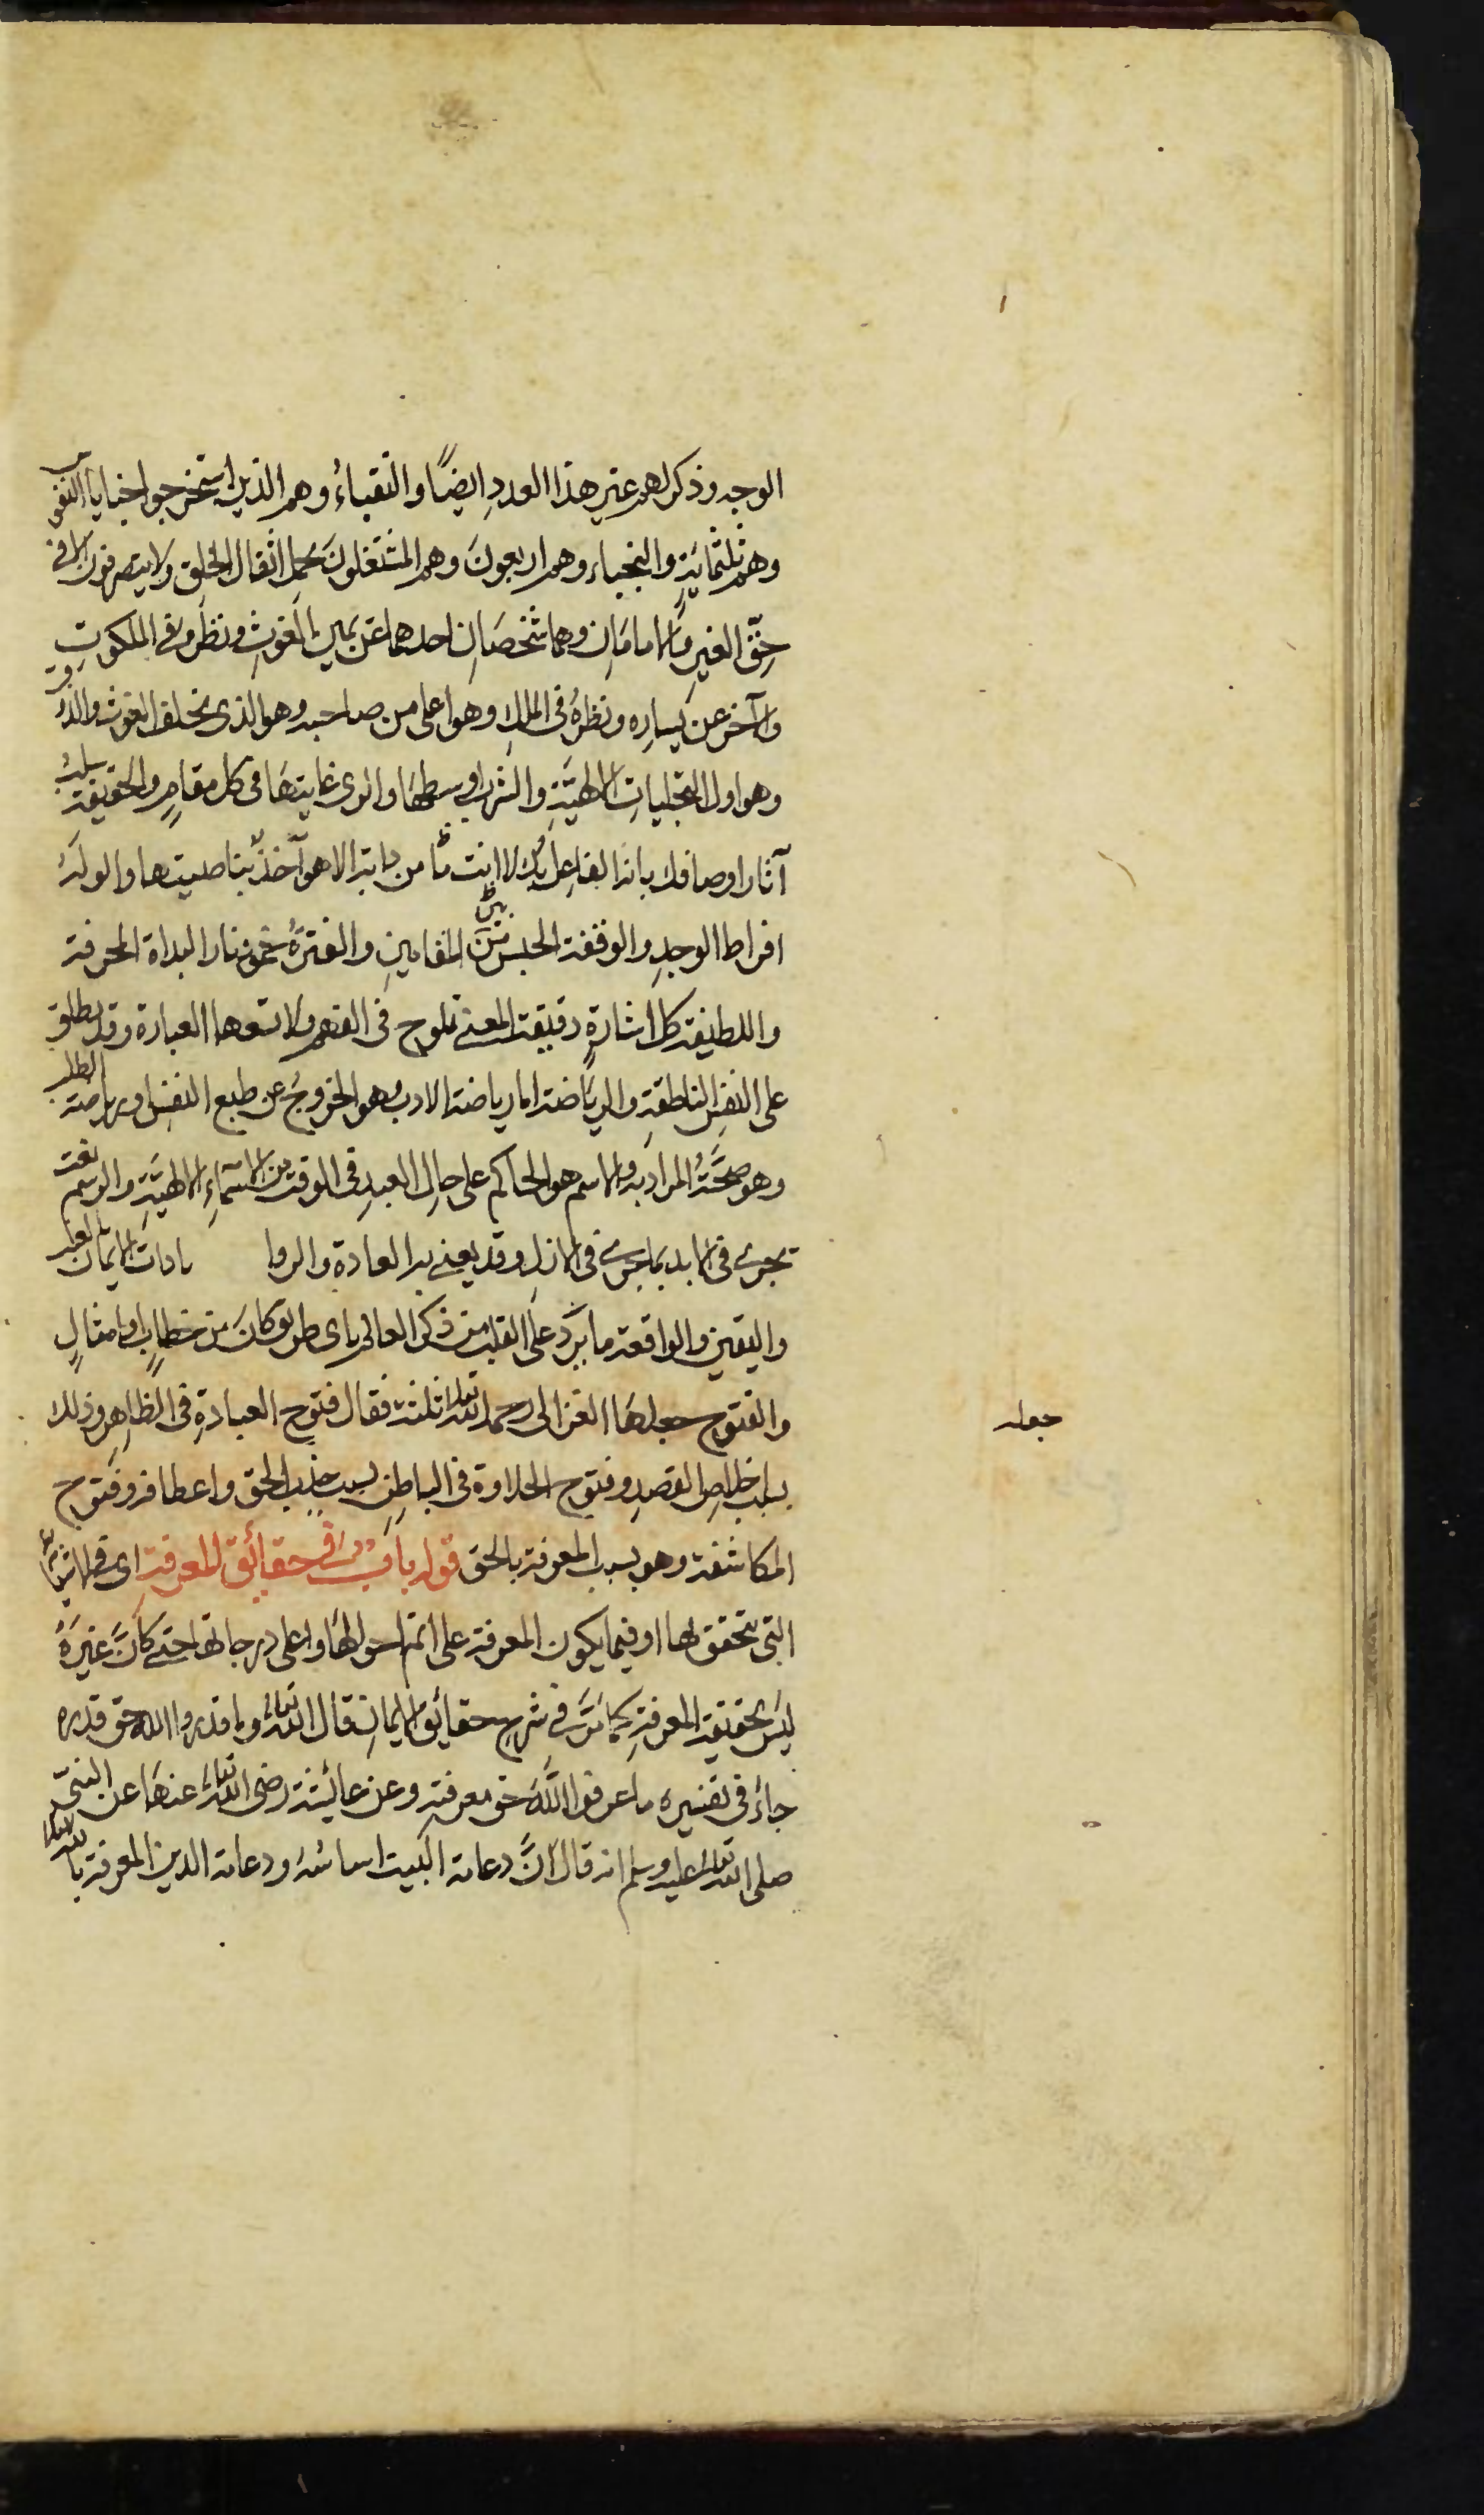 الوجه وذكر لهم غير هذا العدد ايضًا والنقباءُ وهم الذين استخرجوا خبايا النفوس
وهم ثلثمائةٍ والنجباء وهم اربعونَ وهم المشتغلونَ بحمل اثقال الخلق ولا يتصرفون الا فى
حقّ الغيرِ والامامَانِ وهما شخصَانِ احدهما عن يمين الغوثِ ونظره فى الملكوتِ
والآخر عن يساره ونظرهُ فى الملكِ وهو اعلى من صاحبه وهو الذى يخلف الغوث والذوق
وهو اول التجلياتِ الالهيَّةِ والشرب اوسطهَا والرى غايتهَا فى كل مقامٍ والحقيقة سلبُ
آثار اوصافك بانه الفاعل بك لا انت ما من دابة الا هو آخذٌ بناصيتها والوله
افراط الوجدِ والوقفة الحبس بين المقامينِ والفترةُ خمود نار البداة المحرقة
واللطيفة كل اشارةٍ دقيقة المعنى تلوح فى الفهم ولا تسعها العبارة وقد يطلق
على النفسِ الناطقةِ والريَاضة اما رياضة الادب وهو الخروجُ عن طبع النفسِ او رياضة الطلب
وهو صحَّةُ المراد به والاسم هو الحاكم على حالِ العبدِ فى الوقت من الاسمآءِ الالهيَّةِ والرسم نعت
يجرى فى الابد بما جرى فى الازل وقد يعنى به العادة والزوا ئدات الايمان بالغيب
واليقين والواقعة ما يرد على القلب من ذكر العالم باى طريق كانَ من خطابٍ او امثالٍ
والفتوح جعلهَا الغزالى رحمه الله تعالى ثلثة فقال فتوح العبادةِ فى الظاهِرِ وذلك
جعله
بسبب اخلاص القصدِ وفتوح الحلاوة فى الباطِنِ بسبب جذب الحق واعطافه وفتوح
المكاشفة وهو بسبب المعرفة بالحق قوله بابٌ فى حقائق المعرفةِ اى فى الاشياء
التى يتحقق بها او فيما يكون المعرفة على اتم احوالهَا واعلى درجاتها حتى كانَّ غيرَهُ
ليس بحقيقة المعرفةِ كمَا مرَّ فى شرح حقائق الايمانِ قال الله تعالى وما قدروا الله حق قدره
جاءَ فى تفسيره ما عرفوا اللَّهَ حق معرفته وعن عائشة رضى الله تعالى عنهَا عن النبىّ
صلى الله تعالى عليه وسلم انه قال انَّ دعامة البيت اساسُهُ ودعامة الدين المعرفة بالله تعالى